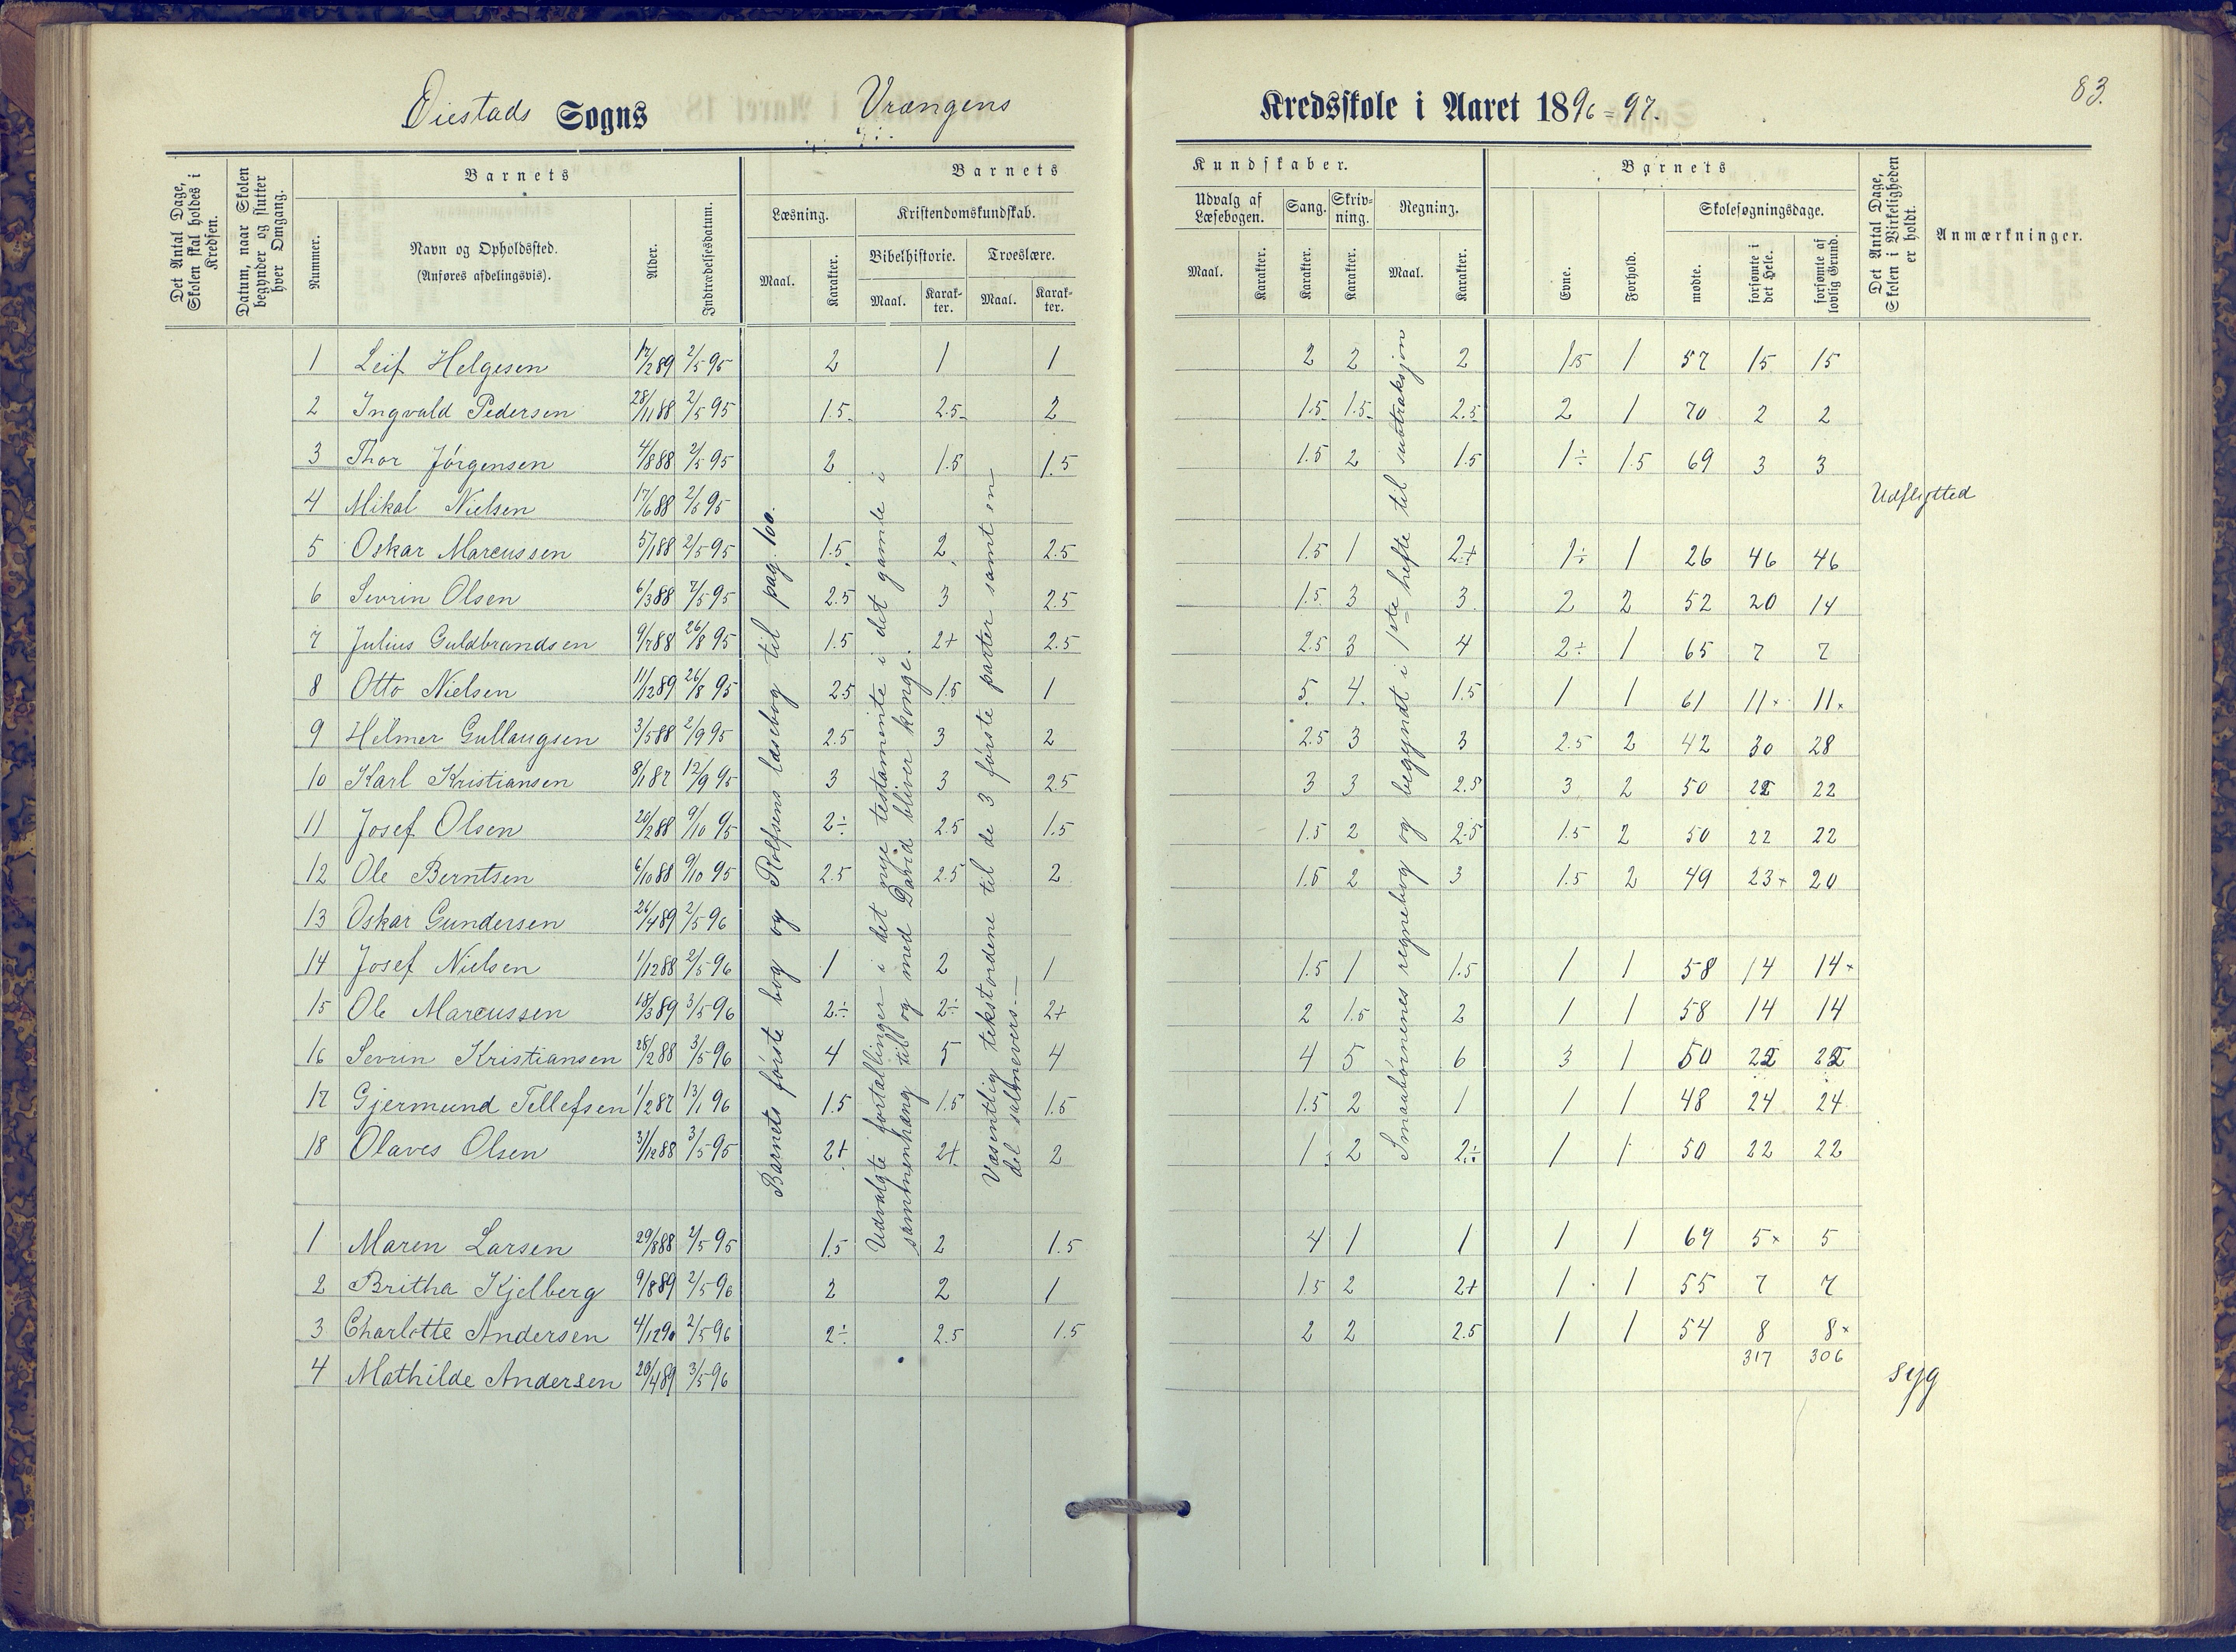 Øiestads Sogns Vrængens Kredsskole i Aaret 1896=97.
83.
Det Antal Dage, Skolen skal holdes i Kredsen.
Datum, naar Skolen begynder og slutter hver Omgang.
Barnets
Nummer.
Navn og Opholdssted.
(Anføres afdelingsvis).
Alder.
Indtrædelsesdatum.
Barnets Kundskaber.
Læsning.
Maal.
Karakter.
Kristendomskundskab.
Bibelhistorie.
Maal.
Karakter.
Troeslære.
Maal.
Karakter.
Udvalg af Læsebogen.
Maal.
Karakter.
Sang.
Karakter.
Skrivning.
Karakter.
Regning.
Maal.
Karakter.
Barnets
Evne.
Forhold.
Skolesøgningsdage.
mødte.
forsømte i det Hele.
forsømte af lovlig Grund.
Det Antal Dage, Skolen i Virkeligheden er holdt.
Anmærkninger.
1 Leif Helgesen 17/2 89 2/5 95 2 1 1 2 2 2 1.5 1 57 15 15
2 Ingvald Pedersen 28/11 88 2/5 95 1.5 2.5 2 1.5 1.5 2.5 2 1 70 2 2
3 Thor Jörgensen 4/8 88 2/5 95 2 1.5 1.5 1.5 2 1.5 1÷ 1.5 69 3 3
4 Mikal Nielsen 17/6 88 2/5 95 Udflytted
5 Oskar Marcussen 5/1 88 2/5 95 1.5 2 2.5 1.5 1 2+ 1÷ 1 26 46 46
6 Sevrin Olsen 6/3 88 7/5 95 2.5 3 2.5 1.5 3 3 2 2 52 20 14
7 Julius Guldbrandsen 9/7 88 26/8 95 1.5 2+ 2.5 2.5 3 4 2÷ 1 65 7 7
8 Otto Nielsen 11/12 89 26/8 95 2.5 1.5 1 5 4 1.5 1 1 61 11× 11×
9 Helmer Gullaugsen 3/5 88 2/9 95 2.5 3 2 2.5 3 3 2.5 2 42 30 28
10 Karl Kristiansen 8/1 87 12/9 95 3 3 2.5 3 3 2.5 3 2 50 22 22
11 Josef Olsen 20/2 88 9/10 95 2÷ 2.5 1.5 1.5 2 2.5 1.5 2 50 22 22
12 Ole Berntsen 6/10 88 9/10 95 2.5 2.5 2 1.5 2 3 1.5 2 49 23+ 20
13 Oskar Gundersen 26/4 89 2/5 96
14 Josef Nielsen 1/12 88 2/5 96 1 2 1 1.5 1 1.5 1 1 58 14 14×
15 Ole Marcussen 18/3 89 3/5 96 2÷ 2÷ 2+ 2 1.5 2 1 1 58 14 14
16 Sevrin Kristiansen 28/2 88 3/5 96 4 5 4 4 5 6 3 1 50 22 22
17 Gjermund Tellefsen 1/2 87 13/1 96 1.5 1.5 1.5 1.5 2 1 1 1 48 24 24
18 Olaves Olsen 31/12 88 3/5 95 2+ 2+ 2 1 2 2÷ 1 1 50 22 22
1 Maren Larsen 29/8 88 2/5 95 1.5 2 1.5 4 1 1 1 1 69 5× 5
2 Britha Kjelberg 9/8 89 2/5 96 2 2 1 1.5 2 2+ 1 1 55 7 7
3 Charlotte Andersen 4/12 90 2/5 96 2÷ 2.5 1.5 2 2 2.5 1 1 54 8 8×
317 306
4 Mathilde Andersen 20/4 89 3/5 96 syg
Barnets første bog og Rolfsens læsebog til pag. 100.
Udvalgte fortællinger i det nye testamente i det gamle i
sammenhæng til og med David bliver konge.
Væsentlig tekstordene til de 3 første parter samt en
del salmevers.—
Smaabørnenes regnebog og begyndt i 1ste hefte til subtraksjon